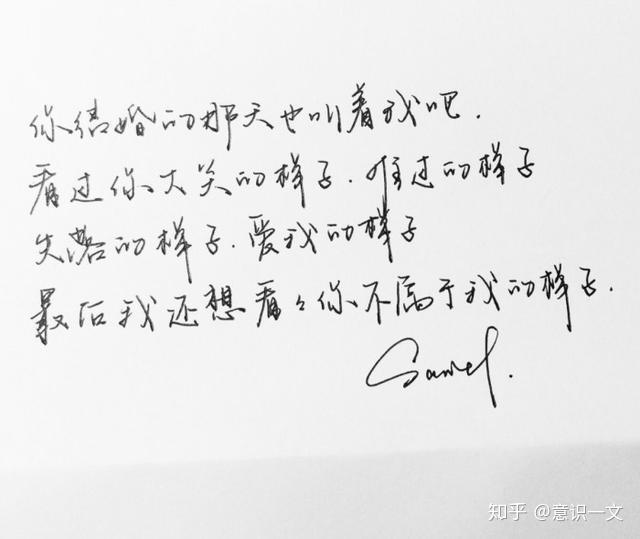 你结婚的那天也叫着我吧.
看过你大笑的样子.难过的样子
失落的样子.爱我的样子
最后我还想看々你不属于我的样子.
知乎 @意识一文